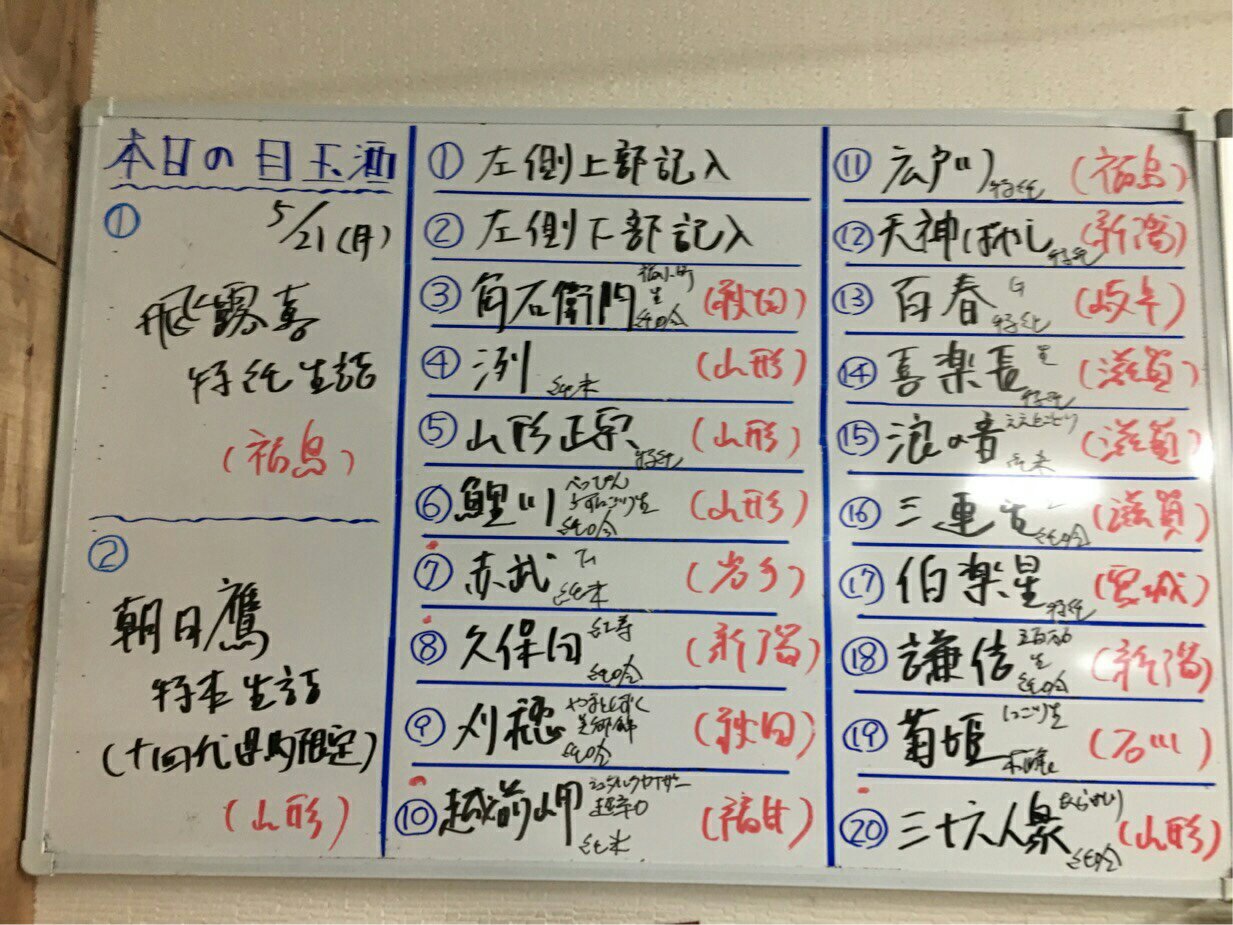 本日の目玉酒
① 5/21(月)
飛露喜
特純生詰
(福島)
②
朝日鷹
特本生詰
(十四代県内限定)
(山形)
① 左側上部記入
② 左側下部記入
③ 角右衛門 福小町 生 純吟 (秋田)
④ 洌 純米 (山形)
⑤ 山形正宗 特純 (山形)
⑥ 鯉川 べっぴん うすにごり生 純吟 (山形)
⑦ 赤武 純米 (岩手)
⑧ 久保田 紅寿 純吟 (新潟)
⑨ 刈穂 やまとしずく 美郷錦 純吟 (秋田)
⑩ 越前岬 超辛口 純米 (福井)
⑪ 広戸川 特純 (福島)
⑫ 天神ばやし 特純 (新潟)
⑬ 百春 特純 (岐阜)
⑭ 喜楽長 生 特純 (滋賀)
⑮ 浪の音 ええとこどり 純米 (滋賀)
⑯ 三連星 純吟 (滋賀)
⑰ 伯楽星 特純 (宮城)
⑱ 謙信 五百万石 生 純吟 (新潟)
⑲ 菊姫 にごり生 (石川)
⑳ 三十六人衆 純吟 (山形)